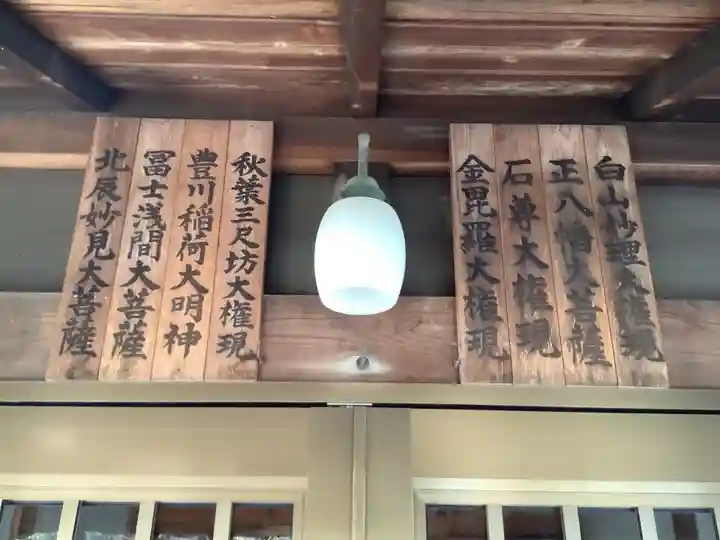 白山妙理大権現
正八幡大菩薩
石尊大権現
金毘羅大権現
秋葉三尺坊大権現
豊川稲荷大明神
冨士浅間大菩薩
北辰妙見大菩薩